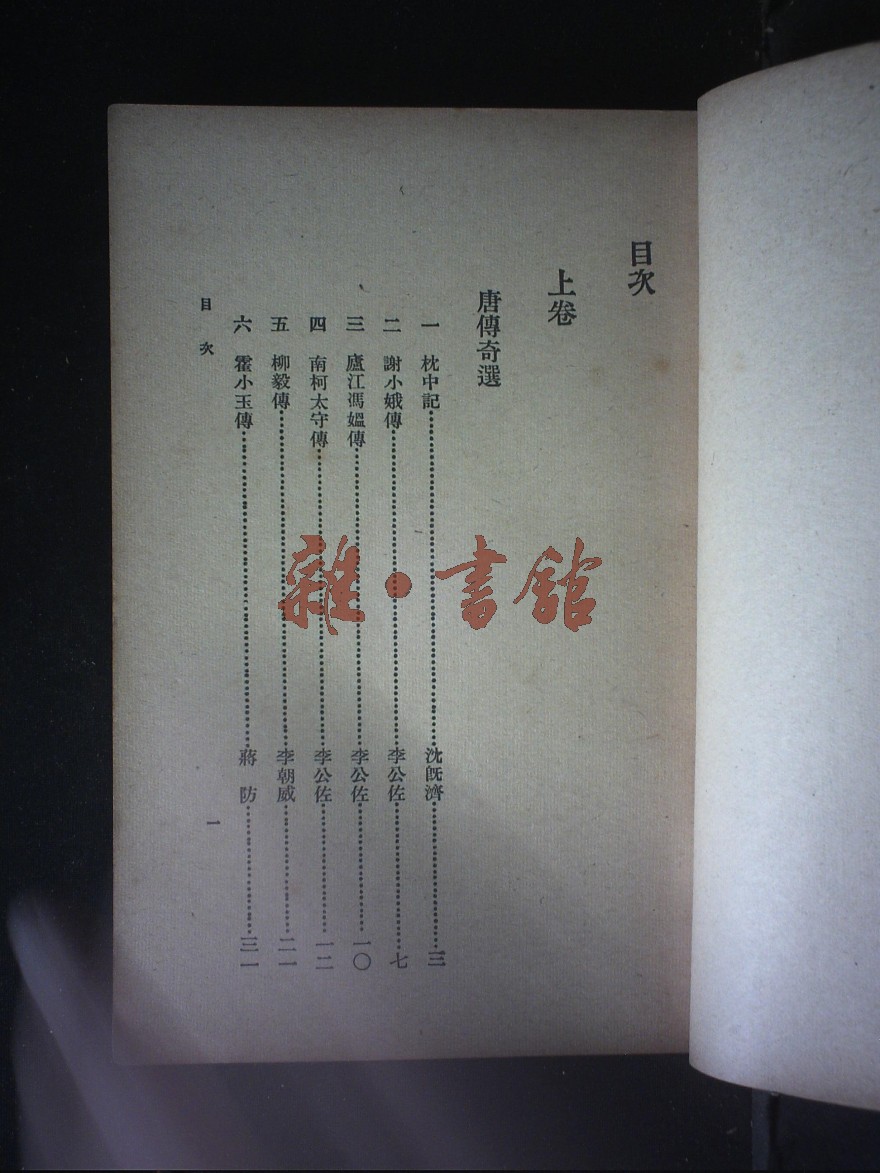 目次
上卷
唐傳奇選
一 枕中記……沈旣濟……三
二 謝小娥傳……李公佐……七
三 廬江馮媼傳……李公佐……一〇
四 南柯太守傳……李公佐……一二
五 柳毅傳……李朝威……二一
六 霍小玉傳……蔣 防……三一
目 次 一
雜·書館